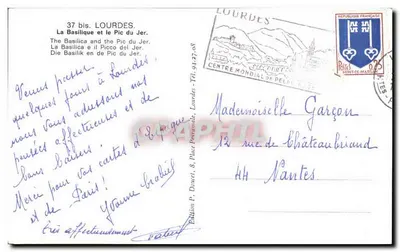 37 bis. LOURDES.
La Basilique et le Pic du Jer.
The Basilica and the Pic du Jer.
La Basilica e il Picco del Jer.
Die Basilik en de Pic du Jer.
Venus passer
quelques jours à Lourdes,
nous vous adressons nos
pensées affectueuses et de
bons baisers.
Merci pour vos cartes d'
et de Paris!
Yvonne
Très affectueusement
Edition P. Doucet, 8, Place Peyramale, Lourdes - Tél. 94.27.08
LOURDES
CENTRE MONDIAL DE PELE
REPUBLIQUE FRANÇAISE
MONT-DE-MARSAN
Mademoiselle Garçon
12 rue de Chateaubriand
44 Nantes